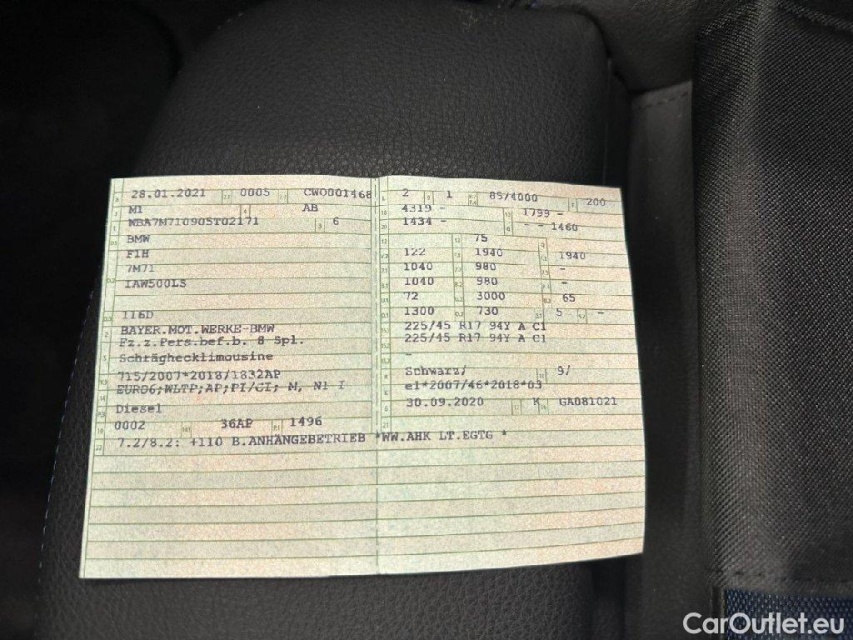 28.01.2021 0005 CW0001468
M1 AB
WBA7M710905T02171 6
BMW
F1H
7M71
IAW500L5
116D
BAYER.MOT.WERKE-BMW
Fz.z.Pers.bef.b. 8 Spl.
Schräghecklimousine
715/2007*2018/1832AP
EURO6;WLTP;AP;PI/CI; M, N1 I
Diesel
0002 36AP 1496
7.2/8.2: +110 B.ANHÄNGEBETRIEB *WW.AHK LT.EGTG *
2 1 85/4000 200
4319 - 1799 -
1434 - - - 1460
75
122 1940 1940
1040 980 -
1040 980 -
72 3000 65
1300 730 5 -
225/45 R17 94Y A C1
225/45 R17 94Y A C1
-
Schwarz/ 9/
e1*2007/46*2018*03
30.09.2020 K GA081021
CarOutlet.eu